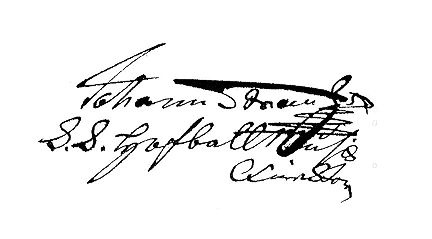 Johann Strauss
K. K. Hofball Musik
Director